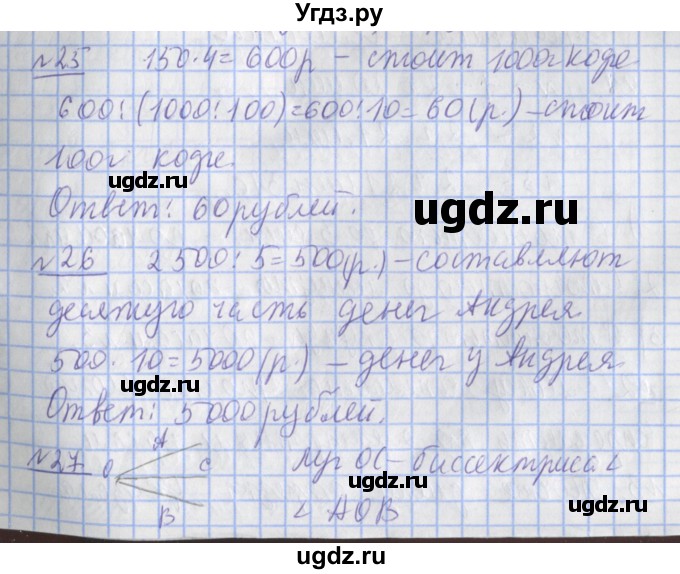 Угдз.ру
№25 150·4=600р – стоит 1000г кофе
600:(1000:100)=600:10=60(р.) – стоит
100г кофе.
ugdz.ru
Ответ: 60 рублей.
ugdz.ru
ugdz.ru
№26 2500:5=500(р.) – составляют
десятую часть денег Андрея
500·10=5000(р.) – денег у Андрея
ugdz.ru
ugdz.ru
Ответ: 5000 рублей.
№27 О А С В луч ОС – биссектриса <
ugdz.ru
ugdz.ru
< АОВ
ugdz.ru
ugdz.ru